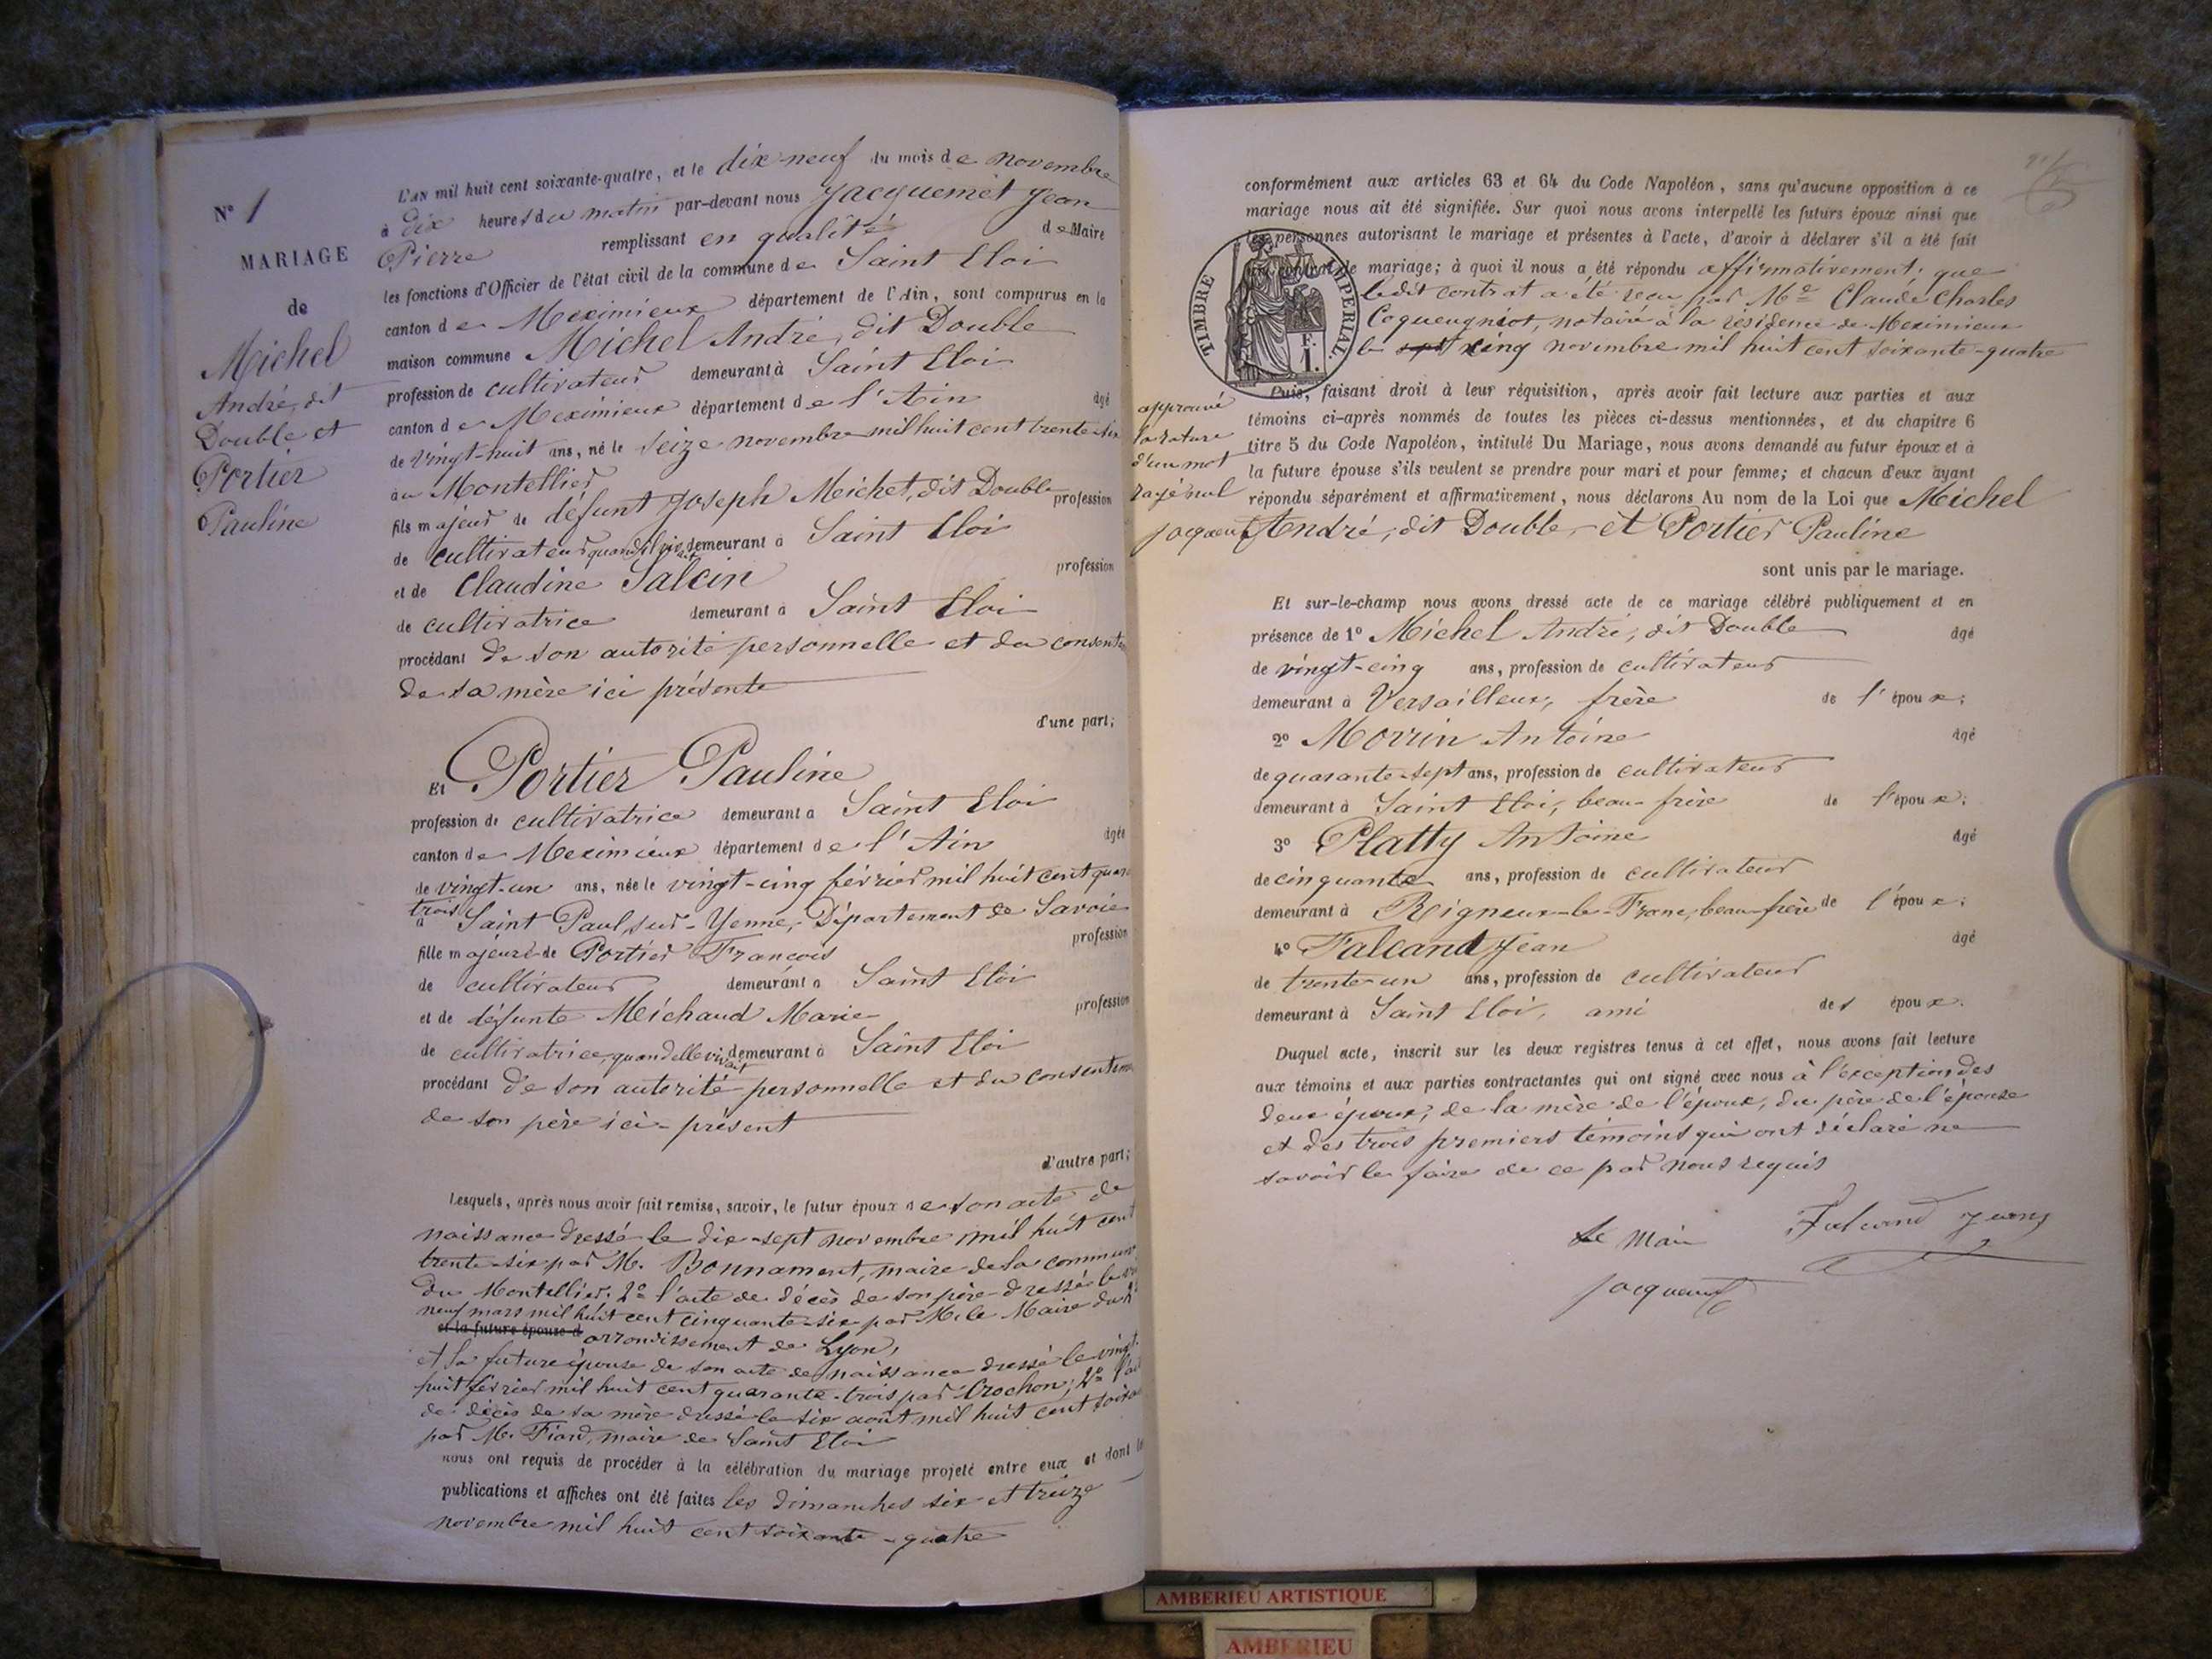 N° 1
MARIAGE
de
Michel
André, dit
Double et
Portier
Pauline
L'AN mil huit cent soixante-quatre, et le dix neuf du mois de novembre
à dix heures du matin par-devant nous Jacquemet Jean
Pierre remplissant en qualité de Maire
les fonctions d'Officier de l'état civil de la commune de Saint Eloi
canton de Meximieux département de l'Ain, sont comparus en la
maison commune Michel André, dit Double
profession de cultivateur demeurant à Saint Eloi
canton de Meximieux département de l'Ain âgé
de vingt-huit ans, né le seize novembre mil huit cent trente-six
au Montellier
fils majeur de défunt Joseph Michel, dit Double profession
de cultivateur quand il vivait demeurant à Saint Eloi
et de Claudine Salcin profession
de cultivatrice demeurant à Saint Eloi
procédant de son autorité personnelle et du consente
de sa mère ici présente
d'une part;
Et Portier Pauline
profession de cultivatrice demeurant à Saint Eloi
canton de Meximieux département de l'Ain âgée
de vingt-un ans, née le vingt-cinq février mil huit cent quar
trois
à Saint Paul, sur-Yenne, Département de Savoie
fille majeure de Portier François profession
de cultivateur demeurant à Saint Eloi
et de défunte Michaud Marie profession
de cultivatrice, quand elle vivait demeurant à Saint Eloi
procédant de son autorité personnelle et du consentem
de son père ici-présent
d'autre part;
Lesquels, après nous avoir fait remise, savoir, le futur époux de son acte de
naissance dressé le dix-sept novembre mil huit cent
trente-six par M. Bonnament, maire de la commune
du Montellier, 2° l'acte de décès de son père dressé le
neuf mars mil huit cent cinquante-six par M. le Maire du 2e
et la future épouse d arrondissement de Lyon,
et la future épouse de son acte de naissance dressé le vingt-
huit février mil huit cent quarante-trois par Crochon; 2° l'acte
de décès de sa mère dressé le six août mil huit cent soixa
par M. Fiard, maire de Saint Eloi
nous ont requis de procéder à la célébration du mariage projeté entre eux et dont les
publications et affiches ont été faites les dimanches six et treize
novembre mil huit cent soixante-quatre
conformément aux articles 63 et 64 du Code Napoléon, sans qu'aucune opposition à ce
mariage nous ait été signifiée. Sur quoi nous avons interpellé les futurs époux ainsi que
les personnes autorisant le mariage et présentes à l'acte, d'avoir à déclarer s'il a été fait
un contrat de mariage; à quoi il nous a été répondu affirmativement, que
ledit contrat a été reçu par Me Claude Charles
Coqueugniot, notaire à la résidence de Meximieux
le sept cinq novembre mil huit cent soixante-quatre
TIMBRE IMPERIAL.
F.
I.
approuvé
la rature
d'un mot
rayé nul
Jacquemet
Puis, faisant droit à leur réquisition, après avoir fait lecture aux parties et aux
témoins ci-après nommés de toutes les pièces ci-dessus mentionnées, et du chapitre 6
titre 5 du Code Napoléon, intitulé Du Mariage, nous avons demandé au futur époux et à
la future épouse s'ils veulent se prendre pour mari et pour femme; et chacun d'eux ayant
répondu séparément et affirmativement, nous déclarons Au nom de la Loi que Michel
André, dit Double, et Portier Pauline
sont unis par le mariage.
Et sur-le-champ nous avons dressé acte de ce mariage célébré publiquement et en
présence de 1° Michel André, dit Double âgé
de vingt-cinq ans, profession de cultivateur
demeurant à Versailleux, frère de l'époux;
2° Morrin Antoine âgé
de quarante-sept ans, profession de cultivateur
demeurant à Saint Eloi, beau-frère de l'époux;
3° Platty Antoine âgé
de cinquante ans, profession de cultivateur
demeurant à Rigneux-le-Franc, beau-frère de l'époux;
4° Falcand Jean âgé
de trente-un ans, profession de cultivateur
demeurant à Saint Eloi, ami des époux.
Duquel acte, inscrit sur les deux registres tenus à cet effet, nous avons fait lecture
aux témoins et aux parties contractantes qui ont signé avec nous à l'exception des
deux époux, de la mère de l'époux, du père de l'épouse
et des trois premiers témoins qui ont déclaré ne
savoir le faire de ce par nous requis
Le Maire Falcand
Jacquemet
AMBERIEU ARTISTIQUE
AMBERIEU